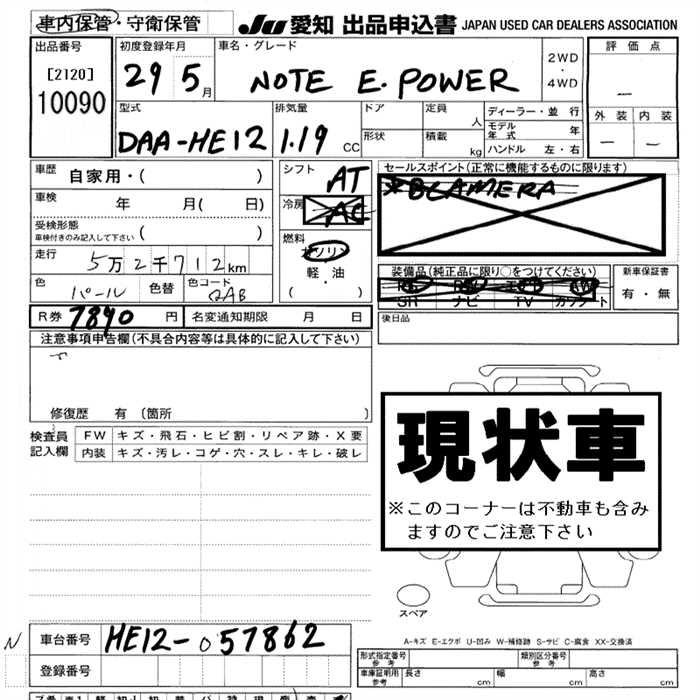 車内保管・守衛保管
JU 愛知 出品申込書 JAPAN USED CAR DEALERS ASSOCIATION
出品番号 初度登録年月 車名・グレード 評価点
[2120] 29 5月 NOTE E.POWER 2WD・4WD
10090
外装 内装
型式 排気量 ドア 定員 人 ディーラー・並行
DAA-HE12 1.19 CC 形状 積載 kg モデル年式 年
ハンドル 左・右
車歴 自家用・( ) シフト AT セールスポイント(正常に機能するものに限ります)
車検 年 月( 日) 冷房 AC *BCAMERA
受検形態 車検付きのみ記入して下さい ( ) 燃料 ガソリン
走行 5万2千712km 軽油 装備品(純正品に限り○をつけてください) 新車保証書
色 パール 色替 色コード QAB ( ) SH ナビ TV カセット 有・無
R券 7890 円 名変通知期限 月 日 後日品
注意事項申告欄(不具合内容等は具体的に記入して下さい)
修復歴 有 (箇所 )
現状車
※このコーナーは不動車も含み
ますのでご注意下さい
検査員記入欄 FW キズ・飛石・ヒビ割・リペア跡・X要
内装 キズ・汚レ・コゲ・穴・スレ・キレ・破レ
スペア
N 車台番号 HE12-057862
A-キズ E-エクボ U-凹み W-補修跡 S-サビ C-腐食 XX-交換済
登録番号
形式指定番号 参考 類別区分番号 参考
車庫証明用 参考 長さ cm 幅 cm 高さ cm